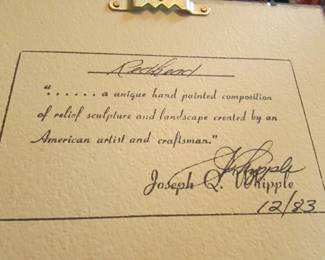 Redhead
"...... a unique hand painted composition
of relief sculpture and landscape created by an
American artist and craftsman."
JWhipple
Joseph Q. Whipple
12/83